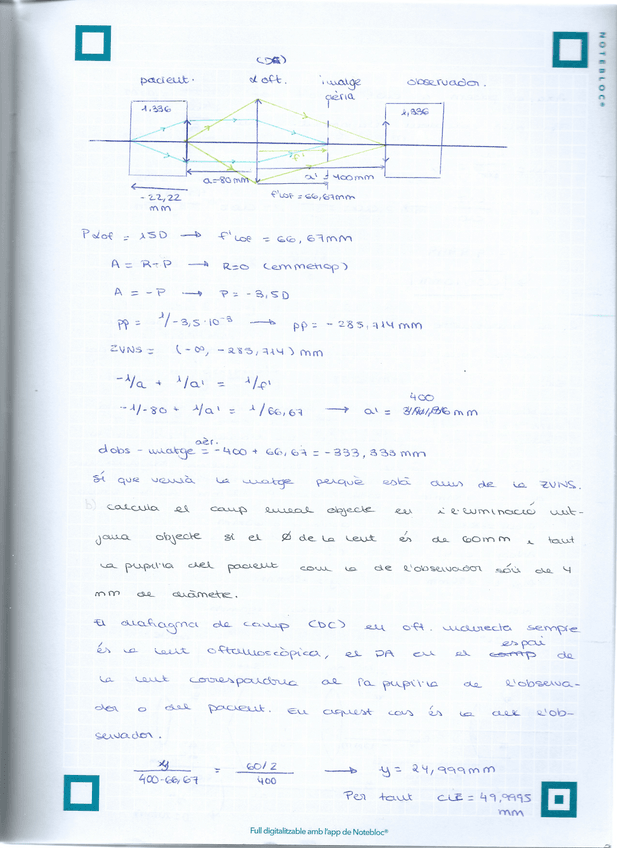 NOTEBLOC®
(DC)
pacient. λ oft. imatge observador.
aèria
1,336 1,336
f'
a=80mm a' = 400mm
-22,22 f'lof = 66,67mm
mm
Pλof = 15D → f'lof = 66,67mm
A = R-P → R=0 (emmetrop)
A = -P → P = -3,5D
pp = 1/-3,5·10⁻³ → pp = -285,714mm
ZVNS = (-∞, -285,714) mm
-1/a + 1/a' = 1/f'
400
-1/-80 + 1/a' = 1/66,67 → a' = mm
aèr.
dobs - imatge = -400 + 66,67 = -333,333 mm
Sí que veurà la imatge perquè està dins de la ZVNS.
b) calcula el camp lineal objecte en il·luminació mit-
jana objecte si el Ø de la lent és de 60mm i tant
la pupil·la del pacient com la de l'observador són de 4
mm de diàmetre.
El diafragma de camp (DC) en oft. indirecta sempre
espai
és la lent oftalmoscòpica, el DA en el camp de
la lent correspondria al la pupil·la de l'observa-
dor o del pacient. En aquest cas és la del l'ob-
servador.
y / 400-66,67 = 60/2 / 400 → y = 24,999mm
Per tant CLI = 49,9995
mm
Full digitalitzable amb l'app de Notebloc®